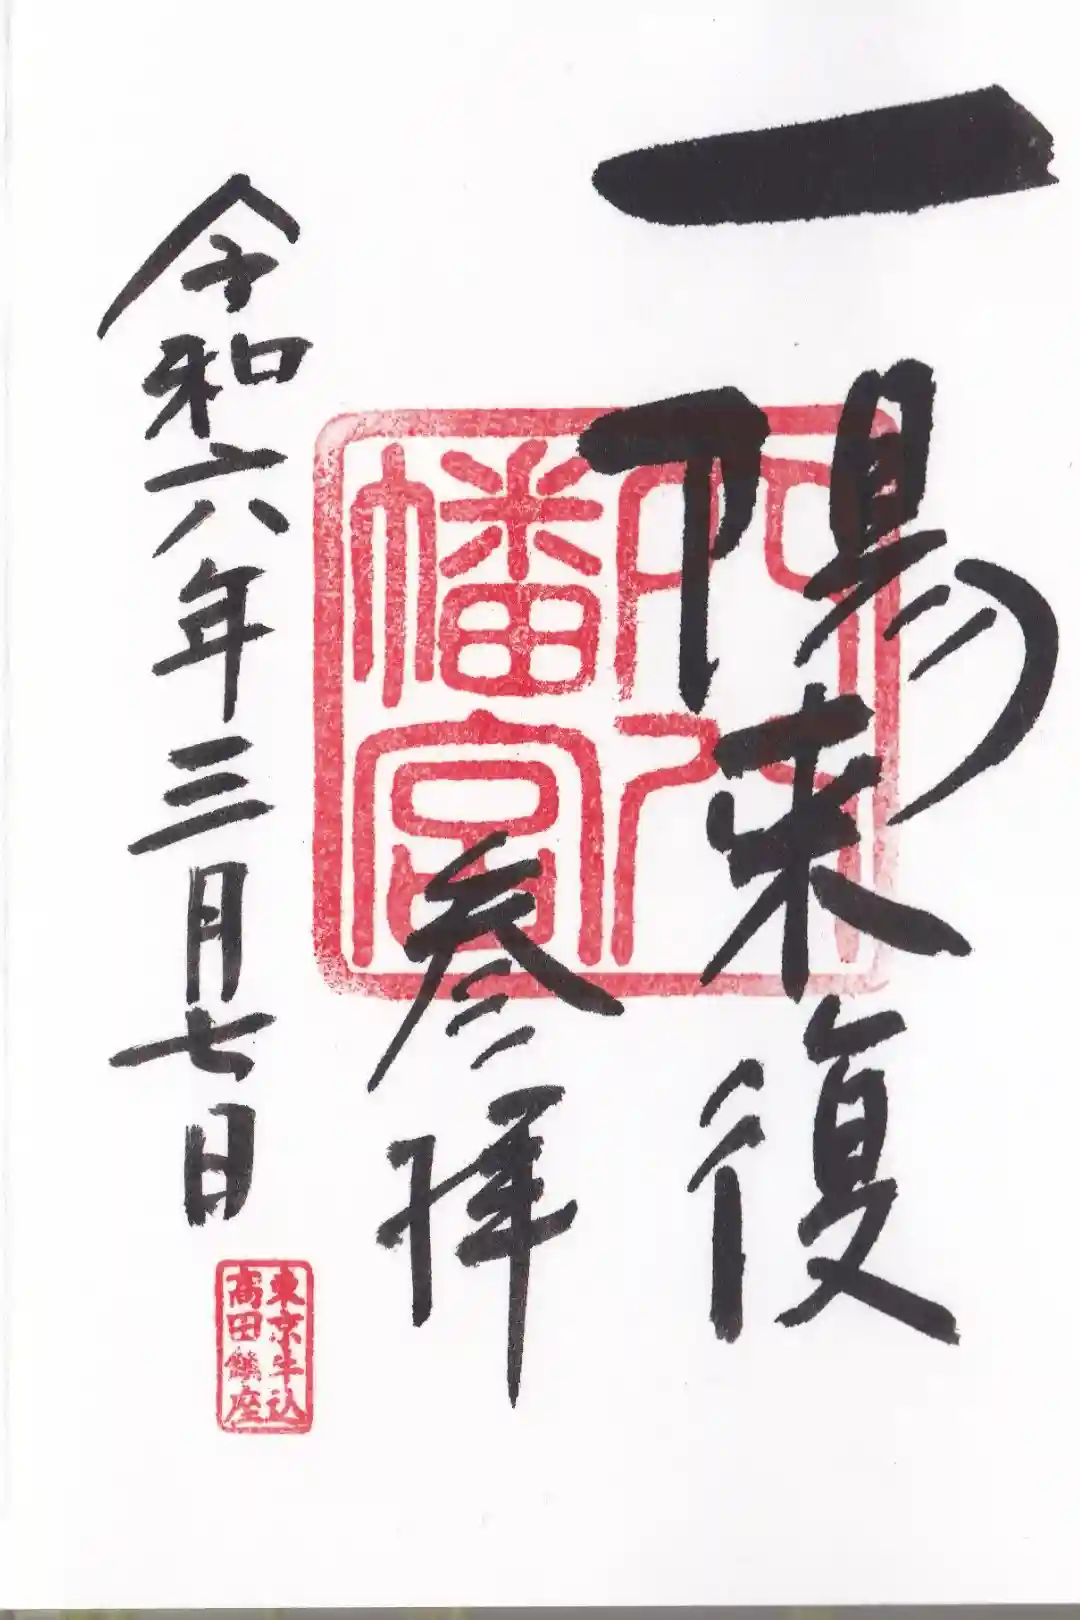 一陽来復
穴八
幡宮
参拝
令和六年三月七日
東京牛込
高田鎮座